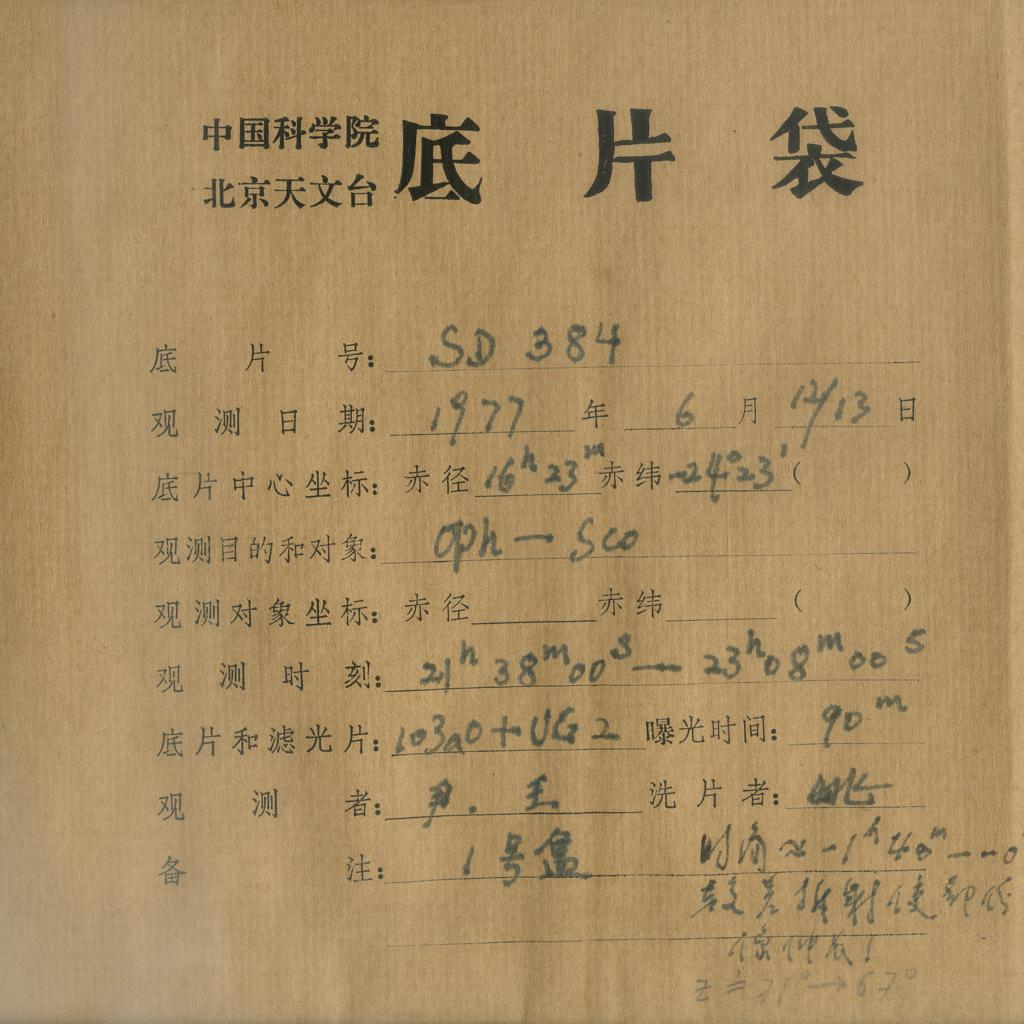 中国科学院
北京天文台
底片袋
底片号: SD 384
观测日期: 1977 年 6 月 12/13 日
底片中心坐标: 赤径 16h23m 赤纬 -24°23' ( )
观测目的和对象: Oph — Sco
观测对象坐标: 赤径 赤纬 ( )
观测时刻: 21h 38m 00s — 23h 08m 00s
底片和滤光片: 103a0+UG2 曝光时间: 90m
观测者: 尹. 王 洗片者:
备注: 1号盒 时角≈-1h40m---0
较差折射使部份
像伸长!
z≐71°→67°